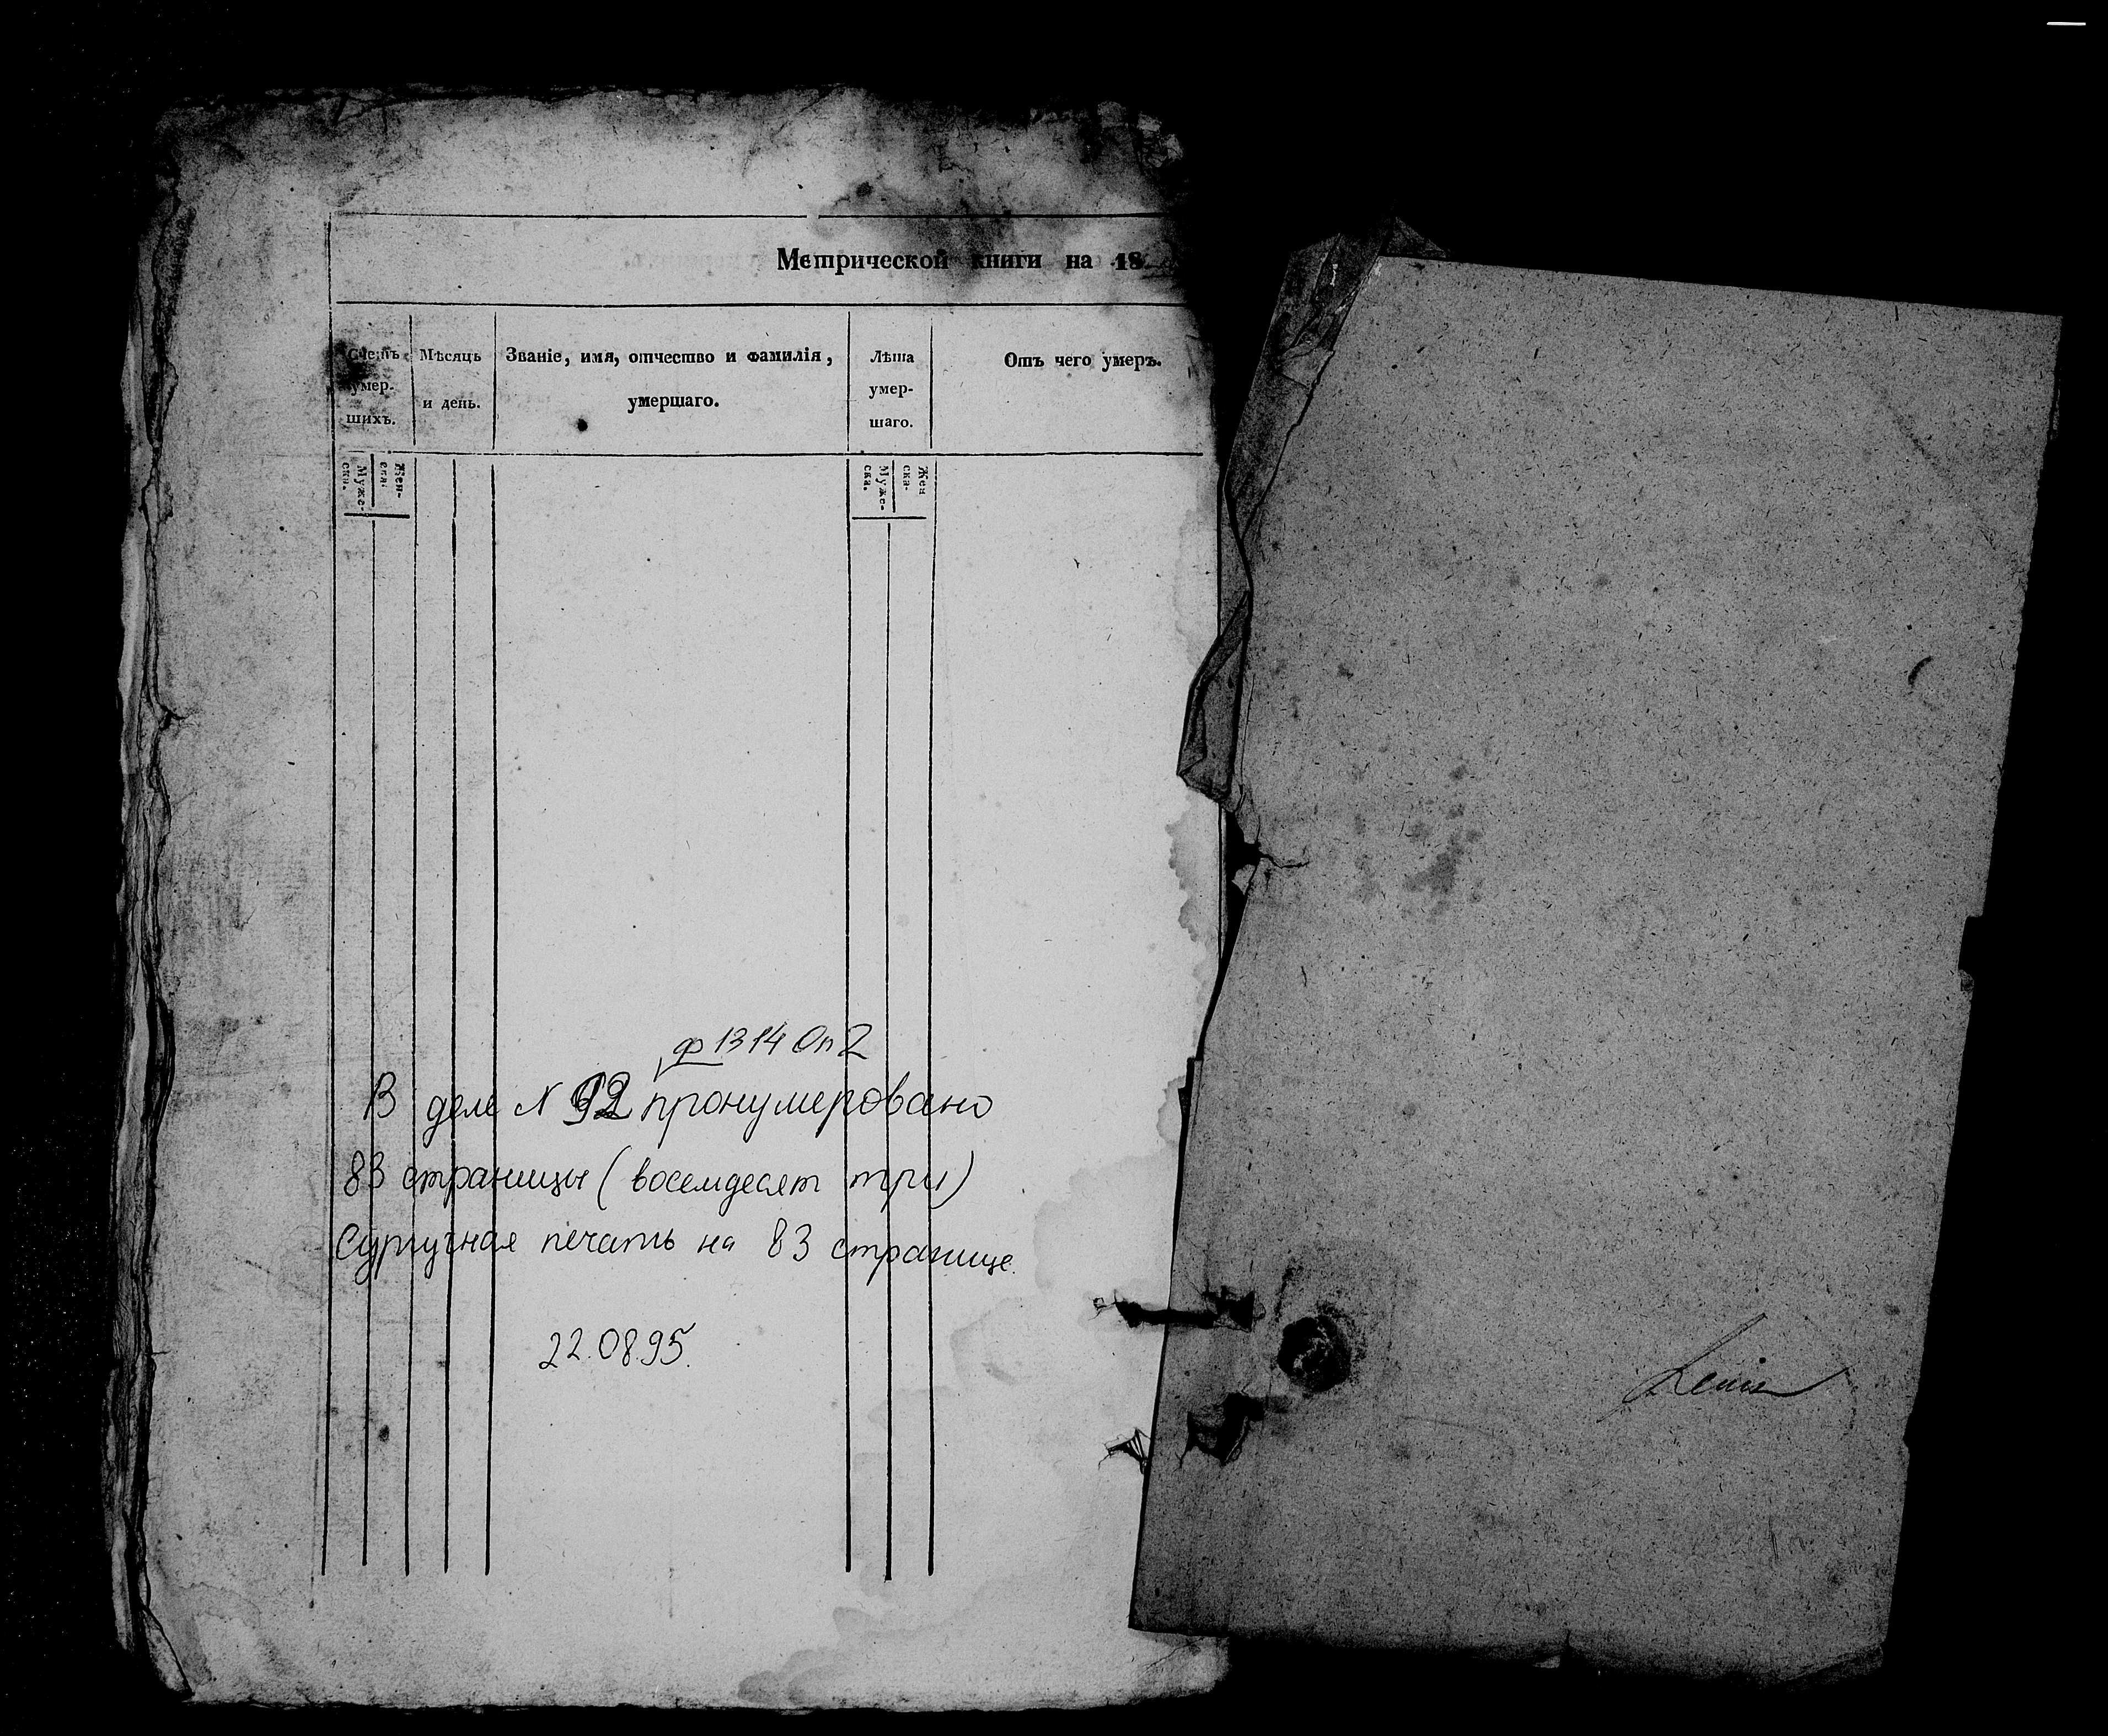 Метрической книги на 18
Счетъ умер. шихъ.
Мѣсяцъ и день.
Званіе, имя, отчество и фамилія, умершаго.
Лѣта умер- шаго.
Отъ чего умеръ.
Муже- ска.
Жен- ска.
Муже- ска.
Жен ска-
ф 1314 Оп 2
В деле N 92 пронумеровано
83 страницы (восемдесят три)
Сургучная печать на 83 странице.
22.08.95.